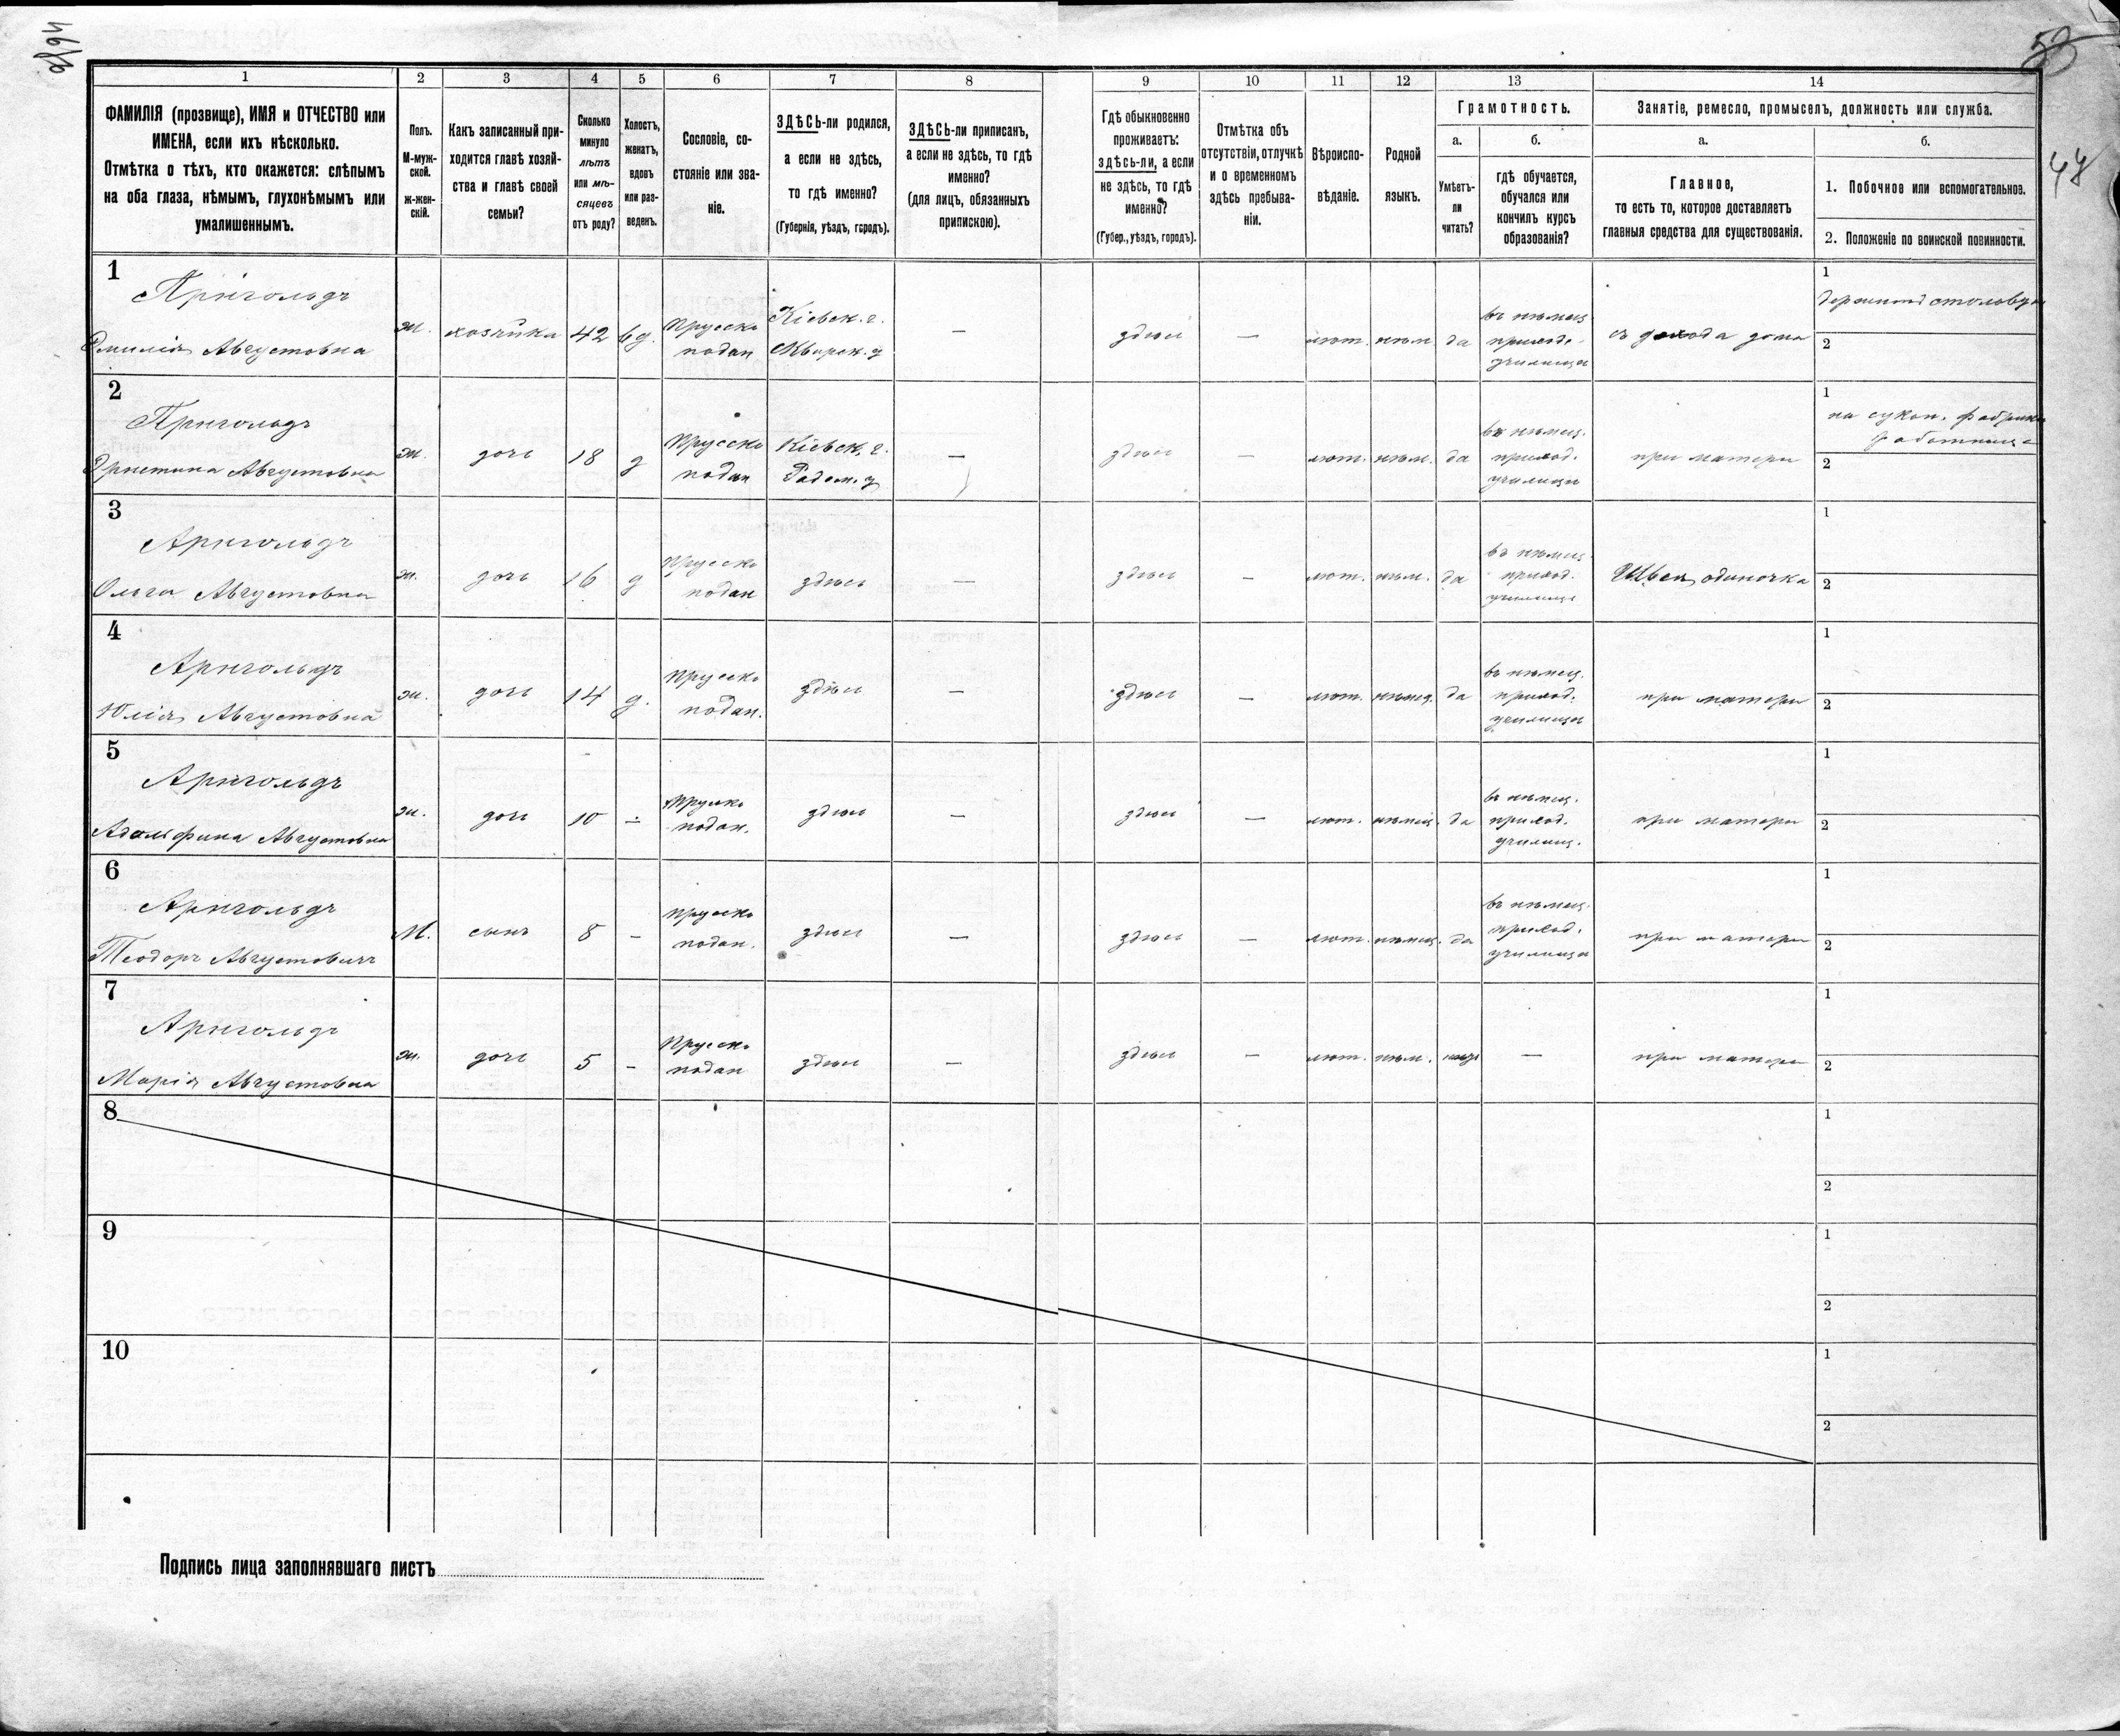 53
48
1
2
3
4
5
6
7
8
9
10
11
12
13
14
ФАМИЛІЯ (прозвище), ИМЯ и ОТЧЕСТВО или
ИМЕНА, если ихъ нѣсколько.
Отмѣтка о тѣхъ, кто окажется: слѣпымъ
на оба глаза, нѣмымъ, глухонѣмымъ или
умалишеннымъ.
Полъ.
М-муж-
ской.
ж-жен-
скій.
Какъ записанный при-
ходится главѣ хозяй-
ства и главѣ своей
семьи?
Сколько
минуло
лѣтъ
или мѣ-
сяцевъ
отъ роду?
Холостъ,
женатъ,
вдовъ
или раз-
веденъ.
Сословіе, со-
стояніе или зва-
ніе.
ЗДѢСЬ-ли родился,
а если не здѣсь,
то гдѣ именно?
(Губернія, уѣздъ, городъ).
ЗДѢСЬ-ли приписанъ,
а если не здѣсь, то гдѣ
именно?
(для лицъ, обязанныхъ
припискою).
Гдѣ обыкновенно
проживаетъ:
здѣсь-ли, а если
не здѣсь, то гдѣ
именно?
(Губер., уѣздъ, городъ).
Отмѣтка объ
отсутствіи, отлучкѣ
и о временномъ
здѣсь пребыва-
ніи.
Вѣроиспо-
вѣданіе.
Родной
языкъ.
Грамотность.
а.
Умѣетъ-
ли
читать?
б.
гдѣ обучается,
обучался или
кончилъ курсъ
образованія?
Занятіе, ремесло, промыселъ, должность или служба.
а.
Главное,
то есть то, которое доставляетъ
главныя средства для существованія.
б.
1. Побочное или вспомогательное.
2. Положеніе по воинской повинности.
1
Арнгольдъ
Эмилія Августовна
ж.
хозяйка
42
вд.
Прусско
подан
Кіевск. г.
Сквирск. у
—
здѣсь
—
лют.
нѣм
да
въ нѣмец
приходс.
училищѣ
съ дохода дома
1
держитъ столовую
2
2
Арнгольдъ
Эрнестина Августовна
ж.
дочь
18
д
Прусско
подан
Кіевск. г.
Радом. у
—
здѣсь
—
лют.
нѣм.
да
въ нѣмец.
приход.
училищѣ
при матери
1
на сукон. фабрикѣ
работница
2
3
Арнгольдъ
Ольга Августовна
ж.
дочь
16
д
Прусско
подан
здѣсь
—
здѣсь
—
лют.
нѣм.
да
въ нѣмец
приход.
училищѣ
Швея, одиночка
1
2
4
Арнгольдъ
Юлія Августовна
ж.
дочь
14
д.
Прусско
подан.
здѣсь
—
здѣсь
—
лют.
нѣмец.
да
въ нѣмец.
приход.
училищѣ
при матери
1
2
5
Арнгольдъ
Адольфина Августовна
ж.
дочь
10
-
Прусско
подан.
здѣсь
—
здѣсь
—
лют.
нѣмец.
да
въ нѣмец.
приход.
училищ.
при матери
1
2
6
Арнгольдъ
Теодоръ Августовичъ
М.
сынъ
8
-
Прусско
подан.
здѣсь
—
здѣсь
—
лют.
нѣмец.
да
въ нѣмец.
приход.
училищѣ
при матери
1
2
7
Арнгольдъ
Марія Августовна
ж.
дочь
5
-
Прусско
подан
здѣсь
—
здѣсь
—
лют.
нѣм.
—
при матери
1
2
8
1
2
9
1
2
10
1
2
Подпись лица заполнявшаго листъ